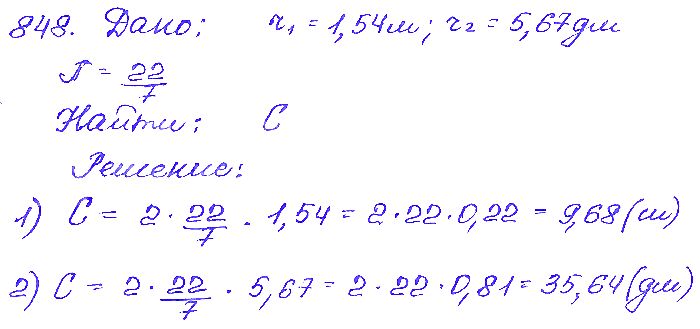 848. Дано: r₁ = 1,54м; r₂ = 5,67дм
π = 22/7
Найти: С
Решение:
1) С = 2 · 22/7 · 1,54 = 2 · 22 · 0,22 = 9,68 (м)
2) С = 2 · 22/7 · 5,67 = 2 · 22 · 0,81 = 35,64 (дм)